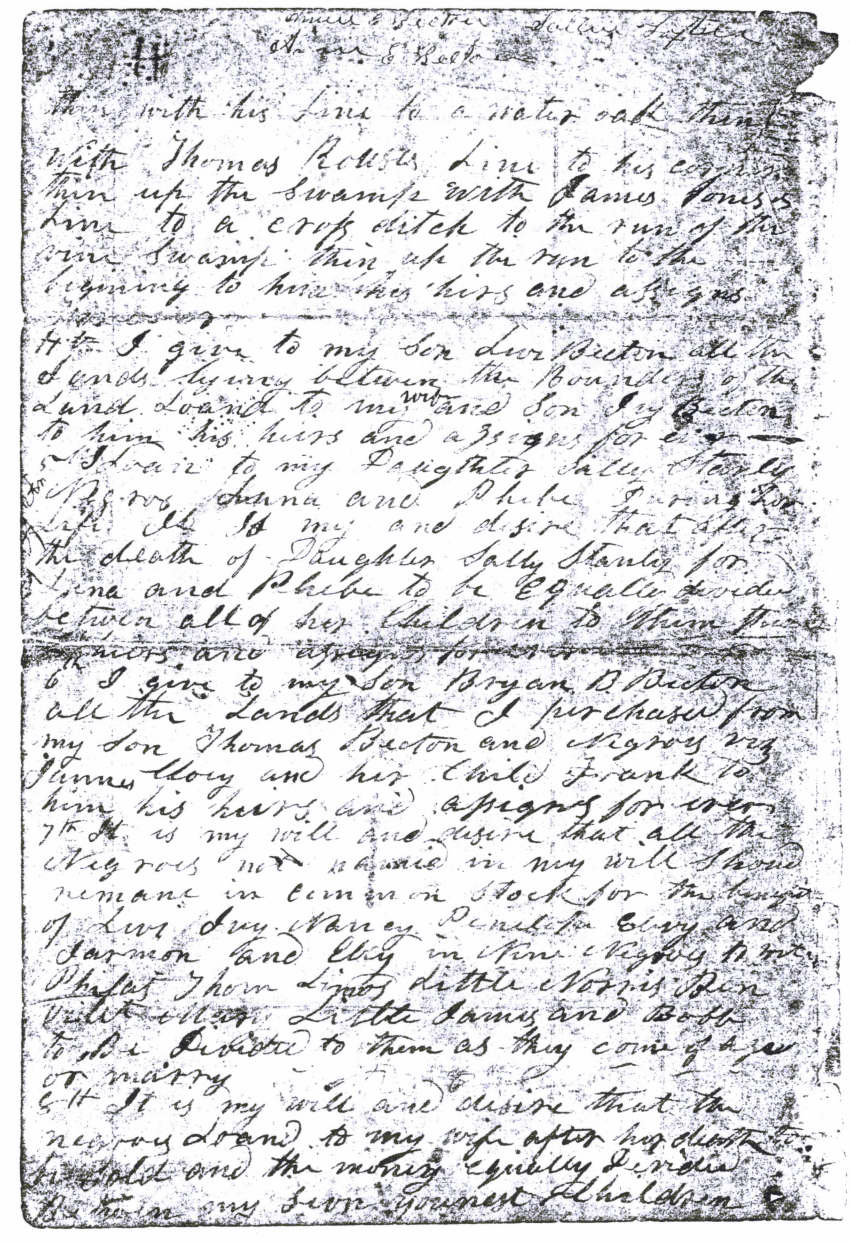 E Becton
thin with his Line to a water oak then
with Thomas Rouses Line to his corner
then up the Swamp with James Joneses
Line to a cross ditch to the run of the
vine Swamp then up the run to the
begining to him his hirs and assigns
4th I give to my Son Levi Becton all the
Lands lying between the Bounders of the
Land Loand to my wife and Son Ivy Becton
to him his heirs and assigns for ever
5th I Loan to my Daughter Sally Stanly
Negros Luna and Phebe During hor
Life It is my and desire that after
the death of Daughter Sally Stanly for
Luna and Phebe to be Equally devided
between all of her Children to them their
heirs and assigns for ever
6th I give to my Son Bryan B Becton
all the Lands that I purchased from
my Son Thomas Becton and Negroes viz
James and her Child Frank to
him his heirs and assigns for ever
7th It is my will and desire that all the
Negroes not named in my will Shoud
remane in common Stock for the benefit
of Levi Ivy Nancy and
Jarmon and in Nine Negroes to
Thom Little Norris Ben
Little James and Bobb
to Be Devided to them as they come of age
or marry
8th It is my will and desire that the
negroes Loand to my wife after her death to
be Sold and the money equally Devided
Between my youngest Children